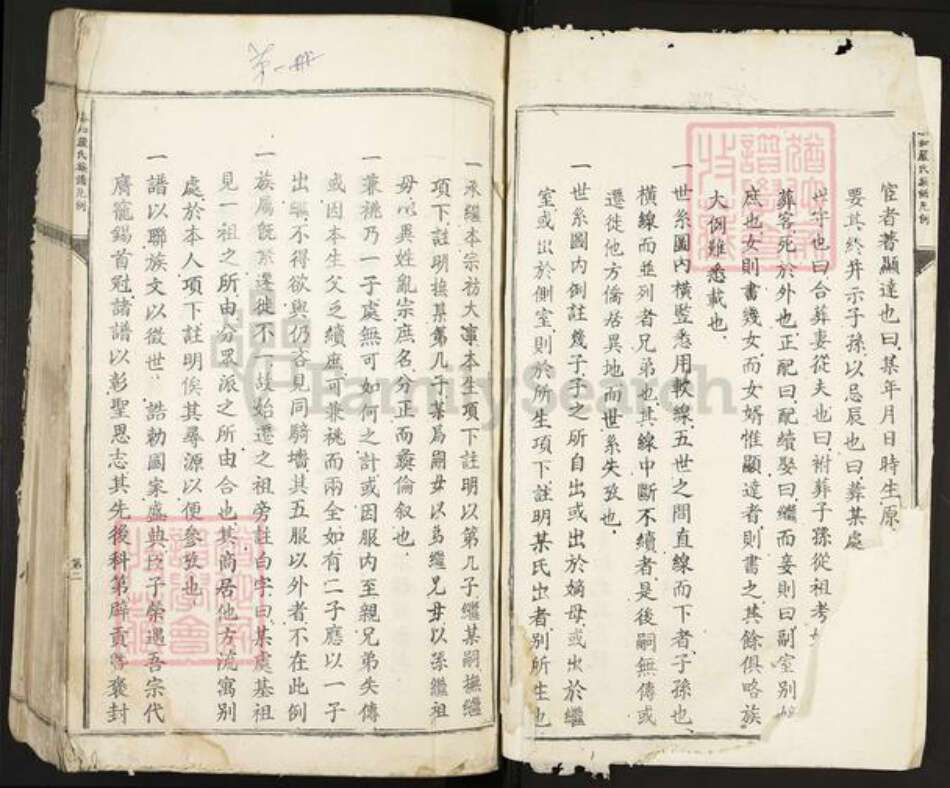 宦者著顯達也曰某年月日時生原
要其終并示子孫以忌辰也曰葬某處
守也曰合葬妻從夫也曰祔葬子孫從祖考
葬客死於外也正配曰配續娶曰繼而妾則曰副室別
庶也女則書幾女而女婿惟顯達者則書之其餘俱略族
大例難悉載也
一世系圖內橫豎悉用軟線五世之間直線而下者子孫也
橫線而並列者兄弟也其線中斷不續者是後嗣無傳或
遷徙他方僑居異地而世系失攷也
一世系圖內例註幾子子之所自出或出於嫡母或出於繼
室或出於側室則於所生項下註明某氏出者別所生也
一承繼本宗務大事本生項下註明以第几子繼某嗣撫繼
項下註明撫某第几子某爲嗣毋以弟繼兄毋以孫繼祖
毋以異姓亂宗庶名分正而彝倫叙也
一兼祧乃一子處無可如何之計或因服內至親兄弟失傳
或因本生父乏續庶可兼祧而兩全如有二子應以一子
出嗣不得欲與仍吝見同騎墻其五服以外者不在此例
一族屬既繁遷徙不一故始遷之祖旁註白字曰某處基祖
見一祖之所由分眾派之所由合也其商居他方流寓別
處於本人項下註明俟其尋源以便參攷也
一譜以聯族文以徵世 誥勅國家盛典臣子榮遇吾宗代
膺寵錫首冠諸譜以彰聖恩志其先後科第辟貢褒封
嚴氏族譜凡例
第二
第一册
嚴氏族譜凡例
FamilySearch